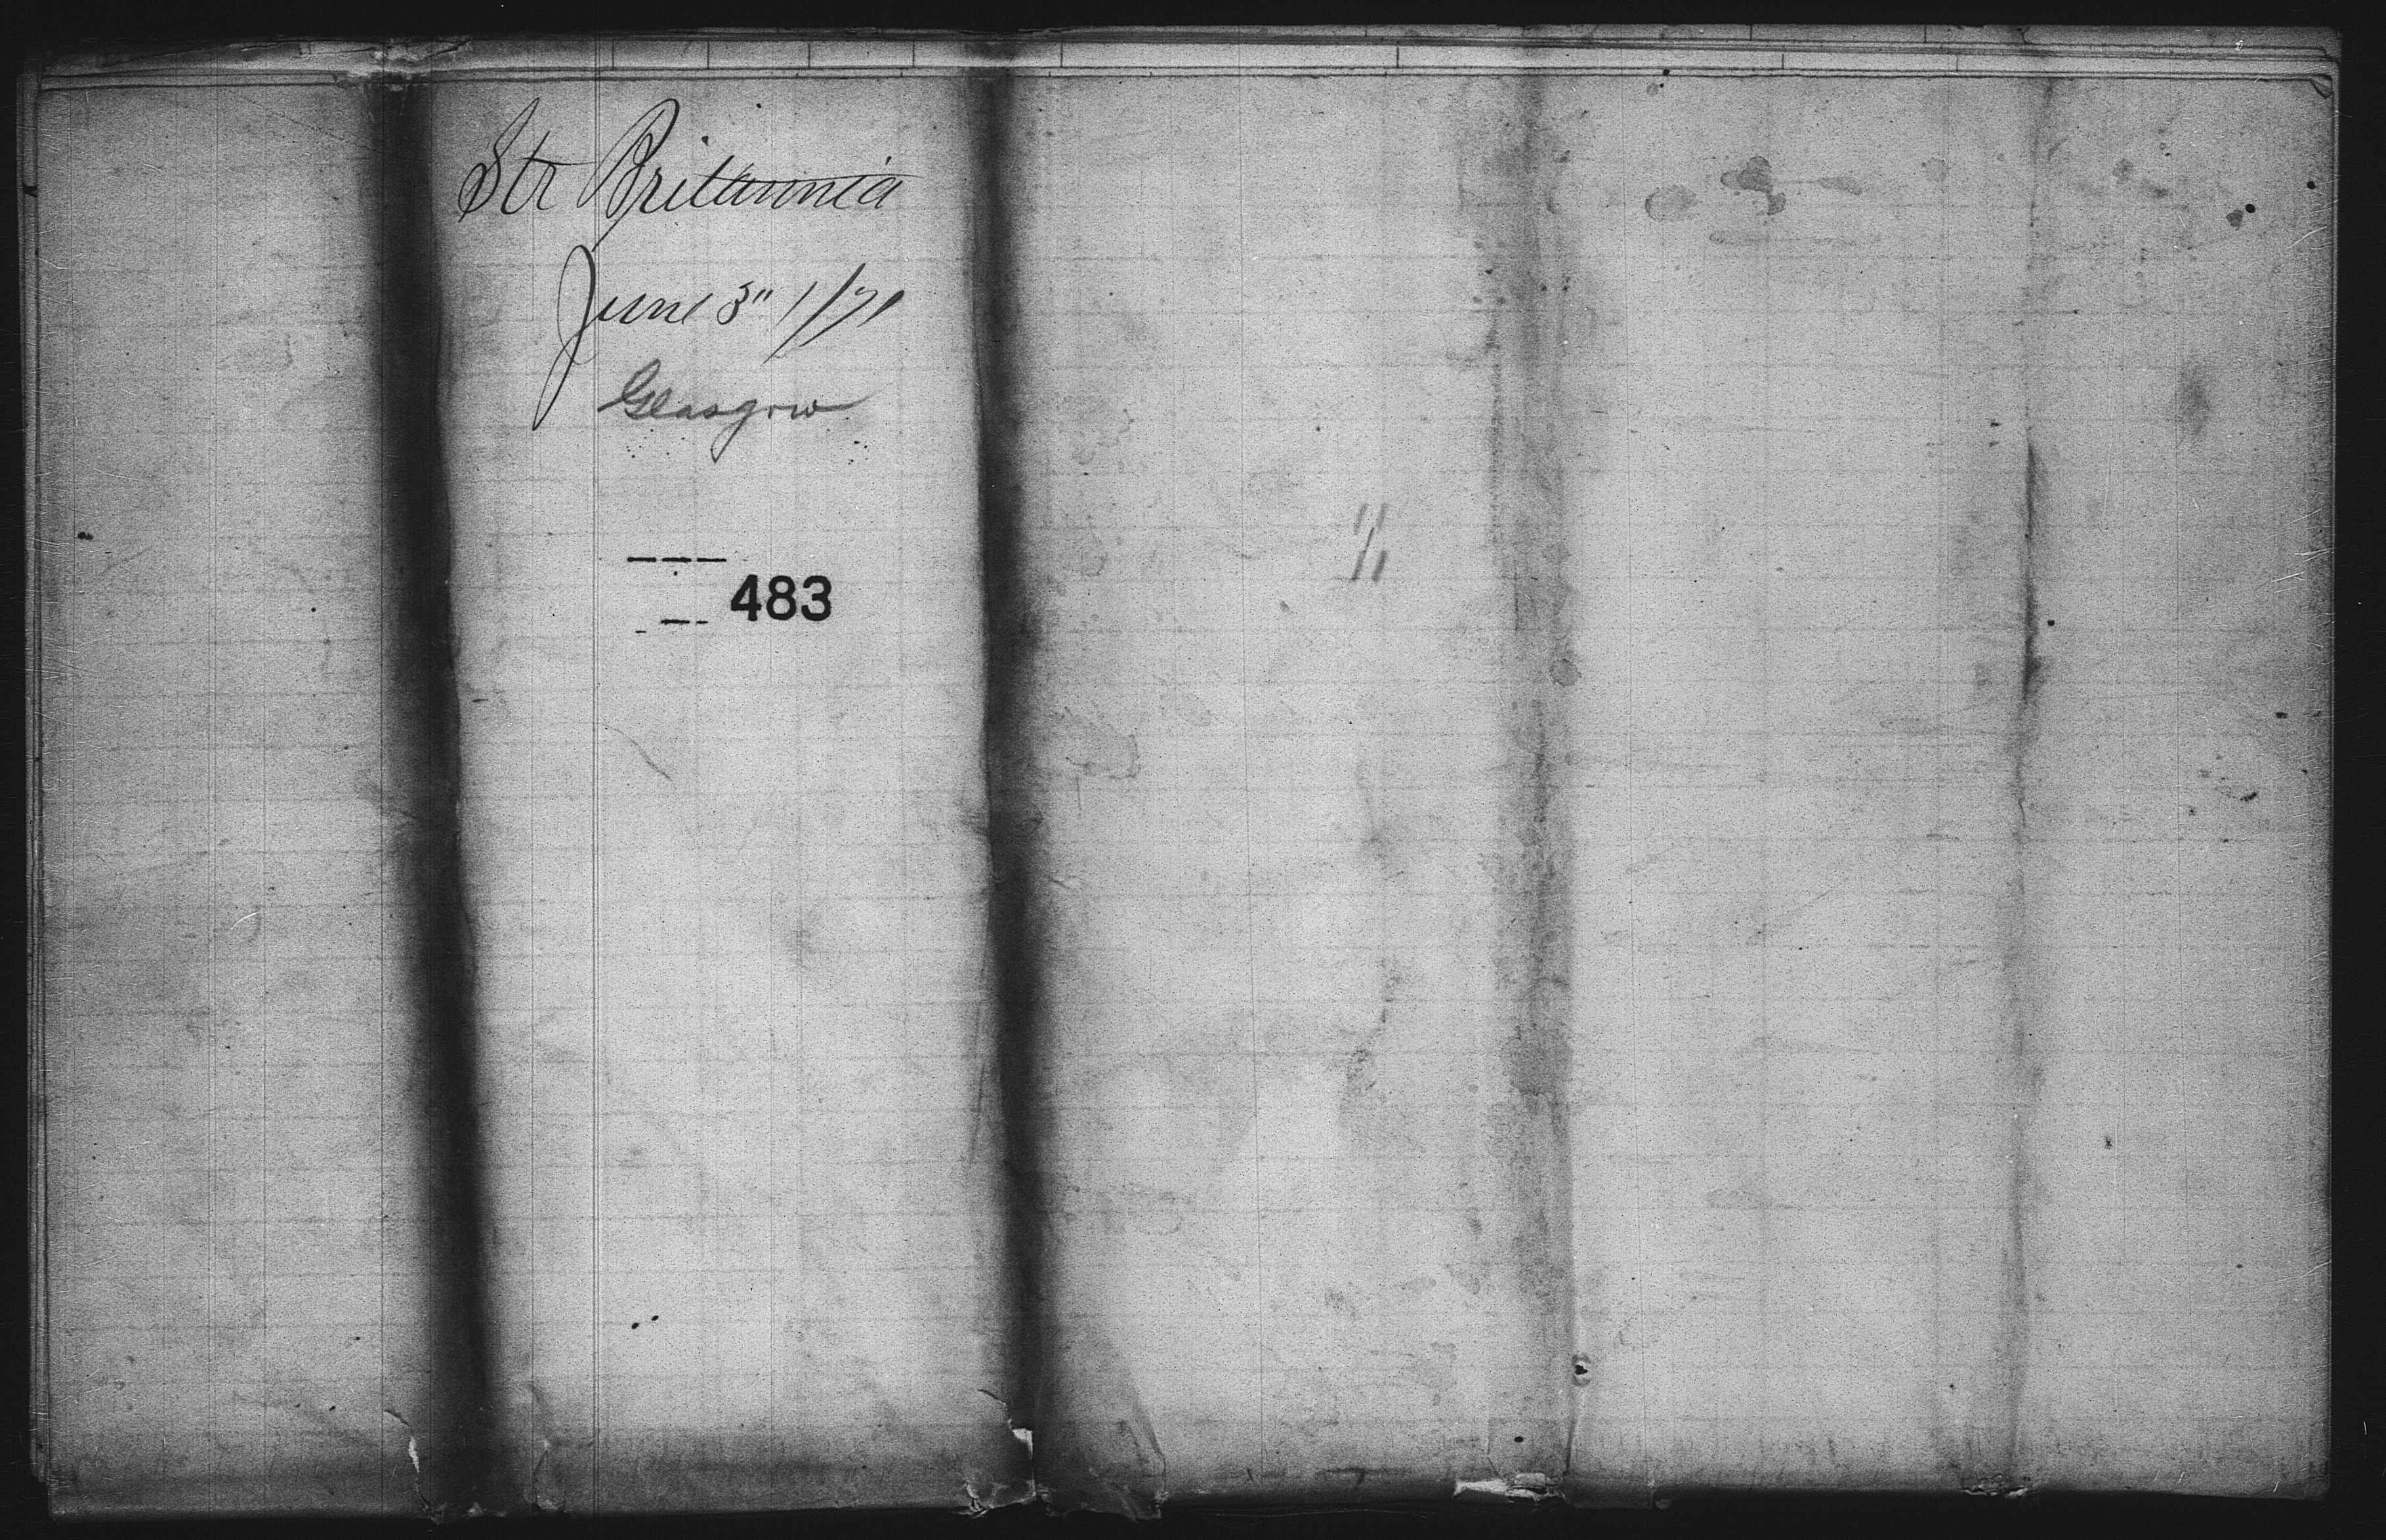 Str Britannia
June 3" 1/71
Glasgow
483